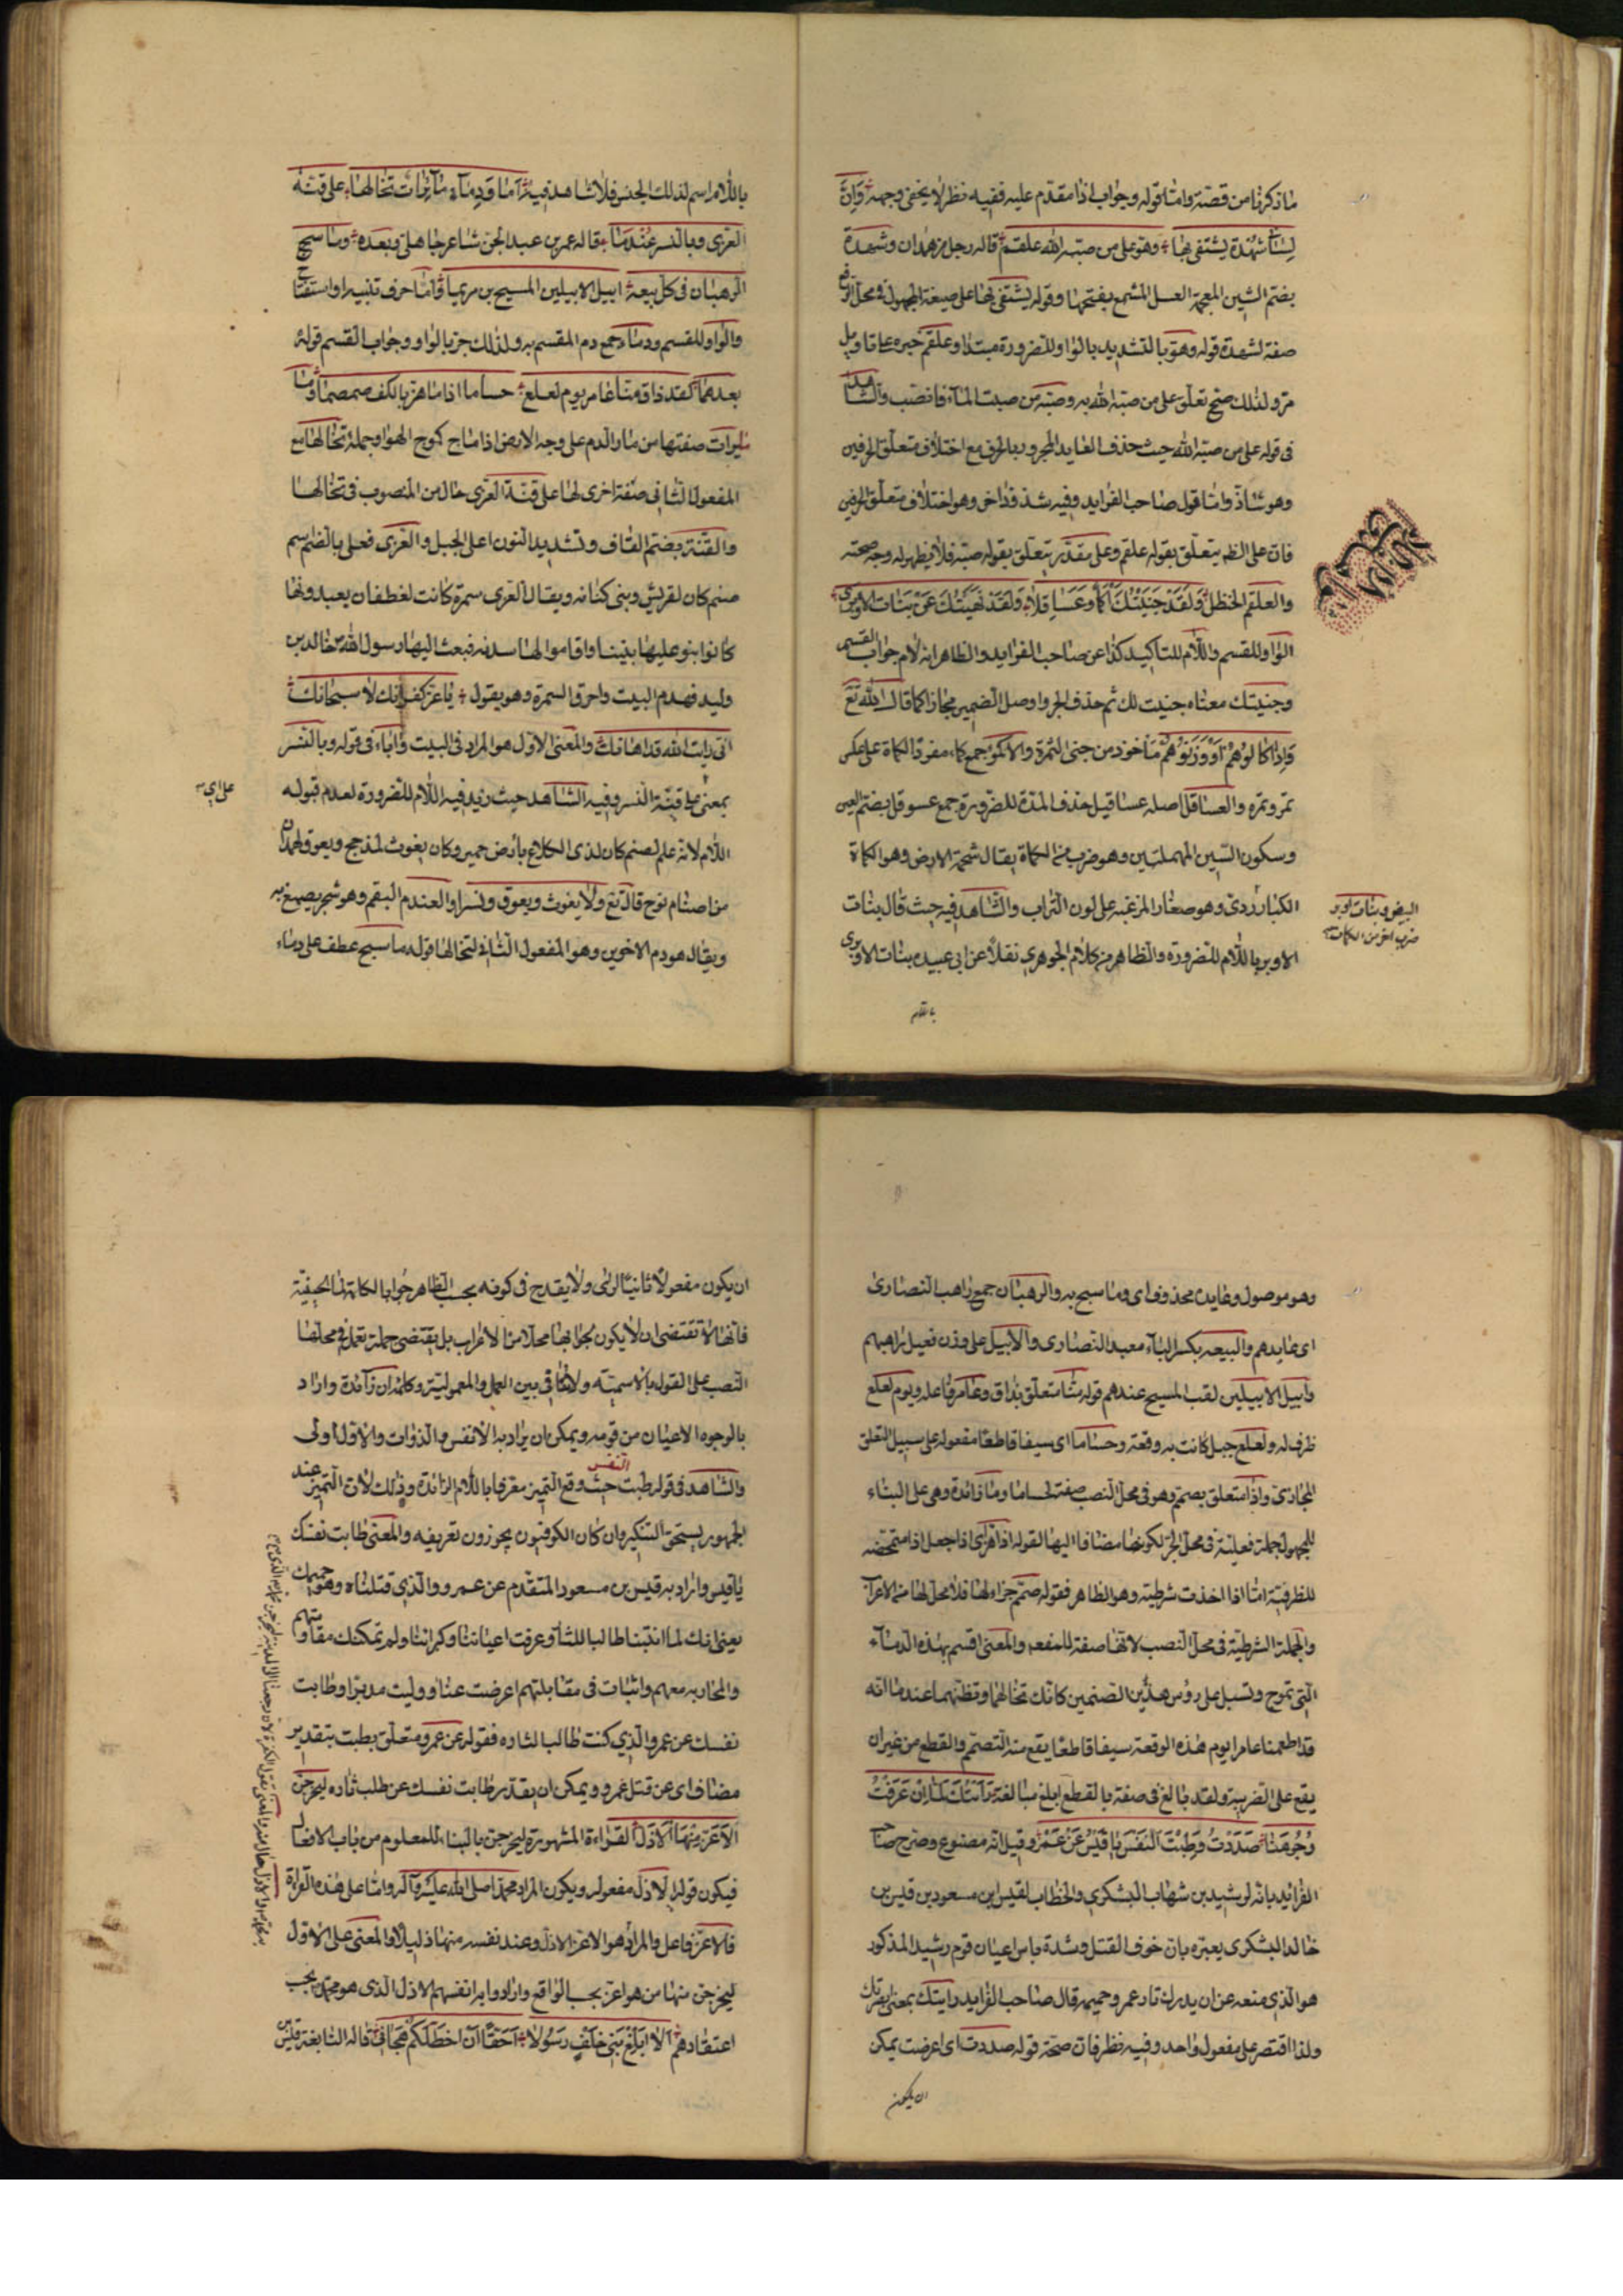 ما ذكرنا من قصته واما قوله وجواب اذا مقدم عليه ففيه نظر لا يخفى وجهه وَاِنَّ
لِسٰانى شهْدة يشتفى بها وهوّ على من صبّه الله علقم قاله رجل من همدان وشهدة
بضم الشين المعجمة العسل المشمع بفتحها وقوله يشتفى بها على صيغة المجهول فى محل الرفع
صفة لشهدة قوله وهوّ بالتشديد بالواو للضرورة مبتدا وعلقم خبره عاقا وبل
مرّ ولذلك صح تعلق على من صبّه الله به وصبّه من صببت الماء فانصب والشاهد
فى قوله على من صبّه الله حيث حذف العايد المجرور بالحرف مع اختلاف متعلق الحرفين
وهو شاذ واما قول صاحب الفرايد وفيه شذوذ اخر وهو اختلاف متعلق الحرفين
فان على الظ يتعلق بقوله علقم وعلى مقدر يتعلق بقوله صبّه فلا يظهر له وجه صحته
والعلقم الحنظل وَلَقَدْ جَنَيْتُكَ اَكْمُأً وعَسَاقِلاً وَلَقَدْ نَهَيْتُكَ عَنْ بَنَات الاوبرى
الواو للقسم واللام للتاكيد كذا عن صاحب الفرايد والظاهر انه لام جواب القسم
وجنيتك معناه جنيت لك ثم حذف الجر واوصل الضمير مجازا كما قال الله تع
وَاِذَا كٰالُوهُمْ اَوْ وَزَنُوهُمْ ماخوذ من جنى الثمرة والاكمؤ جمع كماء مفرد الكماة على عكس
تمر وتمرة والعساقل اصله عساقيل حذف المدة للضرورة جمع عسوقل بضم العين
وسكون السين المهملتين وهو ضرب من الكماة يقال شحمة الارض وهو الكماة
الكبار ردى وهو صغار المزغبه على لون التراب والشاهد فيه حيث قال بنات
الاوبر باللام للضرورة والظاهر من كلام الجوهرى نقلا عن ابى عبيده بنات الاوبرى
البيض وبنات اوبر
ضرب اخر من الكمات
باللام
باللام اسم لذلك الجنس فلا شاهد فيه اَما وَدِماءٍ مٰائِرٰات تخالها على قنّه
العزى وبالنسر عَنْدَمٰا قاله عمر بن عبد الجن شاعر جاهلى وبعده وما سبح
الرهبان فى كل بيعة ابيل الابيلين المسيح بن مريما واما حرف تنبيه او استفتاح
والواو للقسم ودماء جمع دم المقسم به ولذلك جر بالواو وجواب القسم قوله
بعدهما لقد ذاق منا عامر يوم لعلع حساما اذا ما هز بالكف صمصما وما
مايرات صفتها من مار الدم على وجه الارض اذا ماج كموج الهوا وجملة تخالها مع
المفعول الثانى صفة اخرى لها على قنة العزى حال من المنصوب فى تخالها
والقنة بضم القاف وتشديد النون اعلى الجبل والعزى فعلى بالضم اسم
صنم كان لقريش وبنى كنانه ويقال العزى سمرة كانت لغطفان يعبدونها
كانوا بنو عليها بيتا واقاموا لها سدنه فبعث اليها رسول الله ص خالد بن
وليد فهدم البيت واحرق السمرة وهو يقول يا عز كفرانك لا سبحانك
انى رايت الله قد اهانك والمعنى الاول هو المراد فى البيت والباء فى قوله وبالنسر
بمعنى على قنة النسر وفيه الشاهد حيث زيد فيه اللام للضرورة لعدم قبوله
على اى
اللام لانه علم لصنم كان لذى الكلاع بارض حمير وكان يغوث لمذحج ويعوق لهمدان
من اصنام نوح قال تع ولا يغوث ويعوق ونسرا والعندم البقم وهو شجر يصبغ به
ويقال هو دم الاخوين وهو المفعول الثانى لتخالها قوله ما سبح عطف على دماء
وهو موصول وعايده محذوف اى وما سبح به والرهبان جمع راهب النصارى
اى عابدهم والبيعه بكسر الباء معبد النصارى والابيل على وزن فعيل راهبهم
وابيل الابيلين لقب المسيح عندهم قوله منا متعلق بذاق وعامر فاعله ويوم لعلع
ظرف له ولعلع جبل كانت به وقعة وحساما اى سيفا قاطعا مفعوله على سبيل التعلق
المجازى واذا متعلق بصمم وهو فى محل النصب صفة لحساما وما زائدة وهى على البناء
للمجهول جملة فعلية فى محل الجر لكونها مضافا اليها لقوله اذا هز اى اذا جعل اذا متمحضه
للظرفية اما اذا اخذت شرطية وهو الظاهر فقوله صمم جزاء لها فلا محل لها من الاعراب
والجملة الشرطية فى محل النصب لانها صفة للمفعم والمعنى اقسم بهذه الدماء
التى تموج وتسيل على رؤس هذين الصنمين كانك تخالها وتظنهما عندما انه
قد اطعمنا عامرا يوم هذه الوقعة سيفا قاطعا يقع منه التصمم والقطع من غير ان
يقع على الضريبة ولقد بالغ فى صفة بالقطع ابلغ مبالغة رَاَيْتُكَ لَمّا اَنْ عَرَفْتَ
وُجُوهَنٰا صَدَدْتَ وَطِبْتَ النَفْسَ يٰا قَيْسُ عَنْ عَمْرٍو وقيل انه مصنوع وصرح صاحب
الفرائد بانه لرشيد بن شهاب اليشكرى والخطاب لقيس بن مسعود بن قيس بن
خالد اليشكرى يعيره بان خوف القتل وشدة باس اعيان قوم رشيد المذكور
هو الذى منعه عن ان يدرك ثار عمرو حميمه قال صاحب الفرايد رايتك بمعنى بصرتك
ولذا اقتصر على مفعول واحد وفيه نظر فان صحة قوله صددت اى اعرضت يمكن
ان يكون
ان يكون مفعولا ثانيا لراى ولا يقدح فى كونه بحسب الظاهر جوابا لكلمة لما الحينية
فانها لا تقتضى ان لا يكون لجوابها محلا من الاعراب بل يقتضى جملة تعمل فى محلها
النصب على القول بالاسمية ولا تنافى بين العمل والمعمولية وكلمة ان زائدة واراد
بالوجوه الاعيان من قومه ويمكن ان يراد به الانفس والذوات والاول اولى
والشاهد فى قوله طبت النفس حيث وقع التميز معرفا باللام الزائدة وذلك لان التميز عند
الجمهور يستحق التنكير وان كان الكوفيون يجوزون تعريفه والمعنى طابت نفسك
يا قيس واراد به قيس بن مسعود المتقدم عن عمرو والذى قتلناه وهو حميمك
يعنى انك لما اتيتنا طالبا للثار وعرفت اعياننا وكبرائنا ولم تمكنك مقاومتهم
والمحاربه معهم واثبات فى مقابلتهم اعرضت عنا ووليت مدبرا وطابت
نفسك عن عمرو الذى كنت طالبا لثاره فقوله عن عمرو متعلق بطبت بتقدير
مضاف اى عن قتل عمرو ويمكن ان يقدر طابت نفسك عن طلب ثاره ليخرجن
الاَعَزّ مِنْهَا الاَذَلّ القراءة المشهورة ليخرجن بالبناء للمعلوم من باب الافعال
فيكون قوله الاذل مفعوله ويكون المراد محمد صلى الله عليه وآله واما على هذه القراة
فالاعز فاعل والمراد هو الاعز الاذل وعند نفسه منها ذليلا والمعنى على الاول
ليخرجن منها من هو اعز بحسب الواقع وارادوا به انفسهم الاذل الذى هو محمد بحسب
اعتقادهم اَلا اَبْلِغْ بَنِى خَلَفٍ رَسُولاً اَحَقّاً اَنّ اَخْطَلَكُمْ هَجٰانِى قاله النابغة قيس